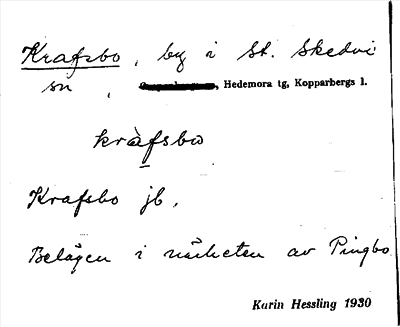 Krafsbo, by i St. Skedvi
sn, , Hedemora tg, Kopparbergs l.
kràfsbω
Krafsbo jb.
Belägen i närheten av Pingbo
Karin Hessling 1930